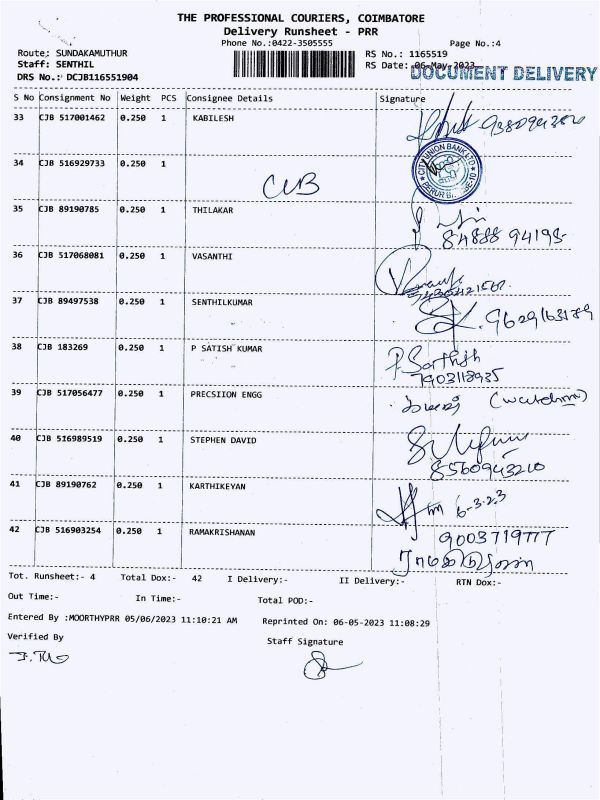 THE PROFESSIONAL COURIERS, COIMBATORE
Delivery Runsheet - PRR
Phone No.:0422-3505555
Page No.:4
Route: SUNDAKAMUTHUR
RS No.: 1165519
Staff: SENTHIL
RS Date: 06-May-2023
DOCUMENT DELIVERY
DRS No.: DCJB116551904
S No Consignment No Weight PCS Consignee Details Signature
33 CJB 517001462 0.250 1 KABILESH
34 CJB 516929733 0.250 1
CUB
CITY UNION BANK LTD
35 CJB 89190785 0.250 1 THILAKAR
84888 94195
36 CJB 517068081 0.250 1 VASANTHI
37 CJB 89497538 0.250 1 SENTHILKUMAR
9629163179
38 CJB 183269 0.250 1 P SATISH KUMAR
P Sarthish
7903118935
39 CJB 517056477 0.250 1 PRECSIION ENGG
40 CJB 516989519 0.250 1 STEPHEN DAVID
8560943210
41 CJB 89190762 0.250 1 KARTHIKEYAN
6-3-23
42 CJB 516903254 0.250 1 RAMAKRISHANAN
9003719777
Tot. Runsheet:- 4 Total Dox:- 42 I Delivery:- II Delivery:- RTN Dox:-
Out Time:- In Time:- Total POD:-
Entered By :MOORTHYPRR 05/06/2023 11:10:21 AM Reprinted On: 06-05-2023 11:08:29
Verified By Staff Signature